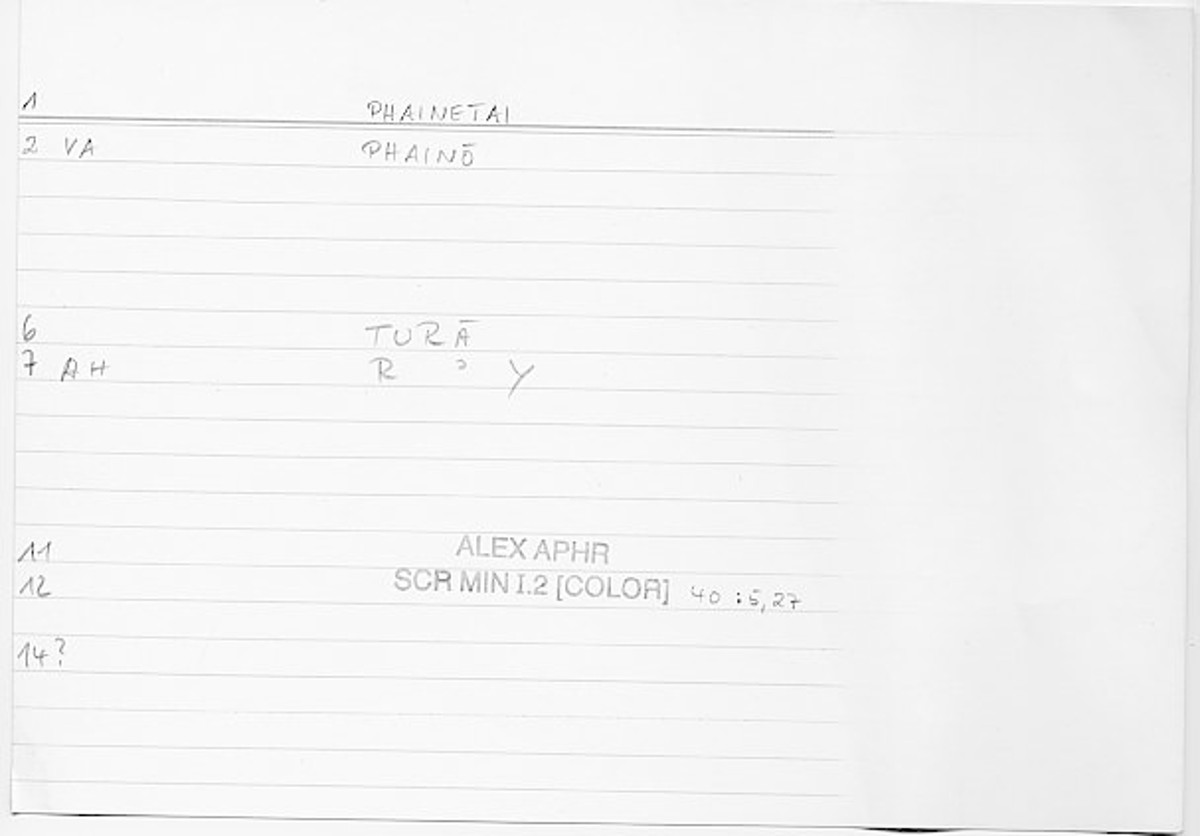 1 PHAINETAI
2 VA PHAINŌ
6 TURĀ
7 AH R ᵓ Y
11 ALEX APHR
12 SCR MIN I.2 [COLOR] 40 : 5,27
14?